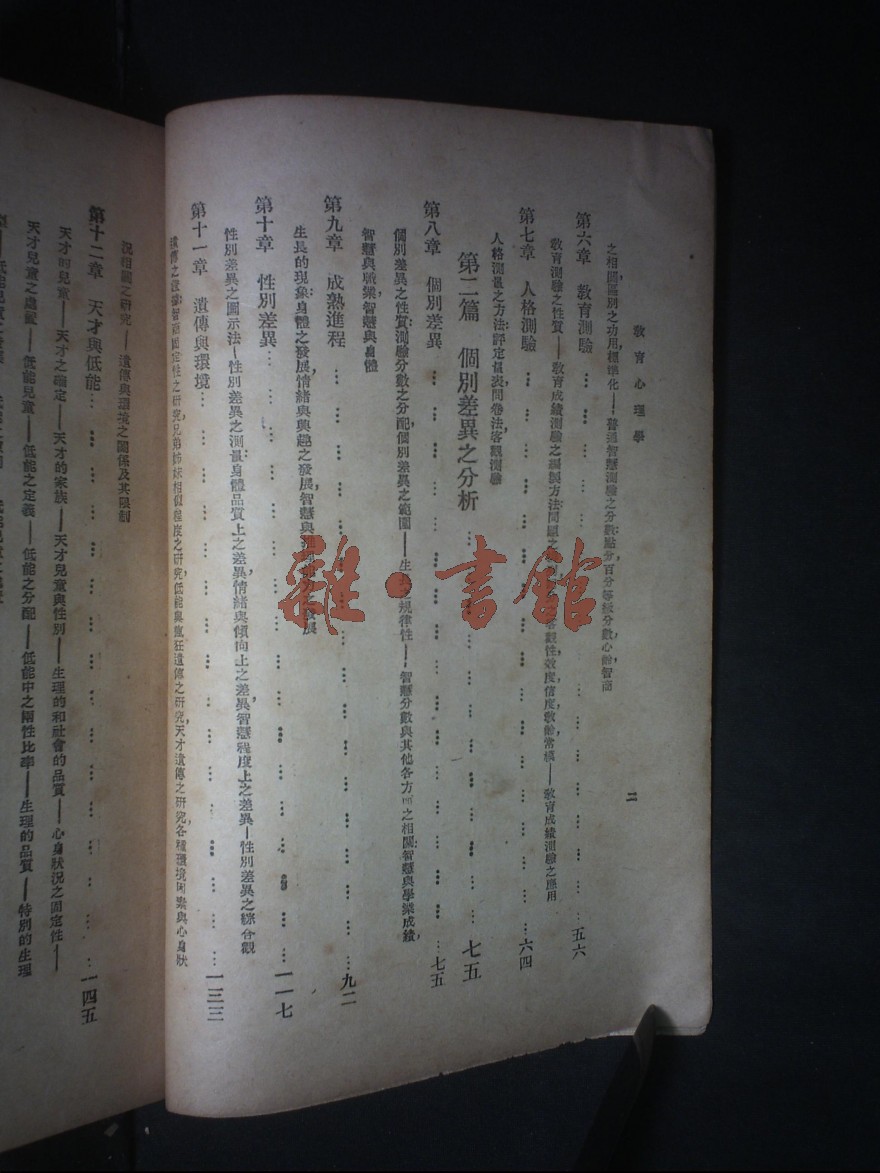 教育心理學
二
之相關，區別之功用，標準化——普通智慧測驗之分數：點分，百分等級分數，心齡，智商
第六章 教育測驗……五六
教育測驗之性質——教育成績測驗之編製方法：問題之 客觀性，效度，信度，教齡，常模——教育成績測驗之應用
第七章 人格測驗……六四
人格測量之方法：評定量表，問卷法，客觀測驗
第二篇 個別差異之分析……七五
第八章 個別差異……七五
個別差異之性質：測驗分數之分配，個別差異之範圍——生長之規律性——智慧分數與其他各方面之相關：智慧與學業成績，
智慧與職業，智慧與身體
第九章 成熟進程……九二
生長的現象：身體之發展，情緒與興趣之發展，智慧與 發展
第十章 性別差異……一一七
性別差異之圖示法—性別差異之測量：身體品質上之差異，情緒與傾向上之差異，智慧程度上之差異—性別差異之綜合觀
第十一章 遺傳與環境……一三三
遺傳之 智商固定性之研究，兄弟姊妹相似程度之研究，低能與瘋狂遺傳之研究，天才遺傳之研究，各種環境因素與心身狀
況相關之研究——遺傳與環境之關係及其限制
第十二章 天才與低能……一四五
天才的兒童——天才之確定——天才的家族——天才兒童與性別——生理的和社會的品質——心身狀況之固定性——
天才兒童之處置——低能兒童——低能之定義——低能之分配——低能中之兩性比率——生理的品質——特別的生理
雜·書館